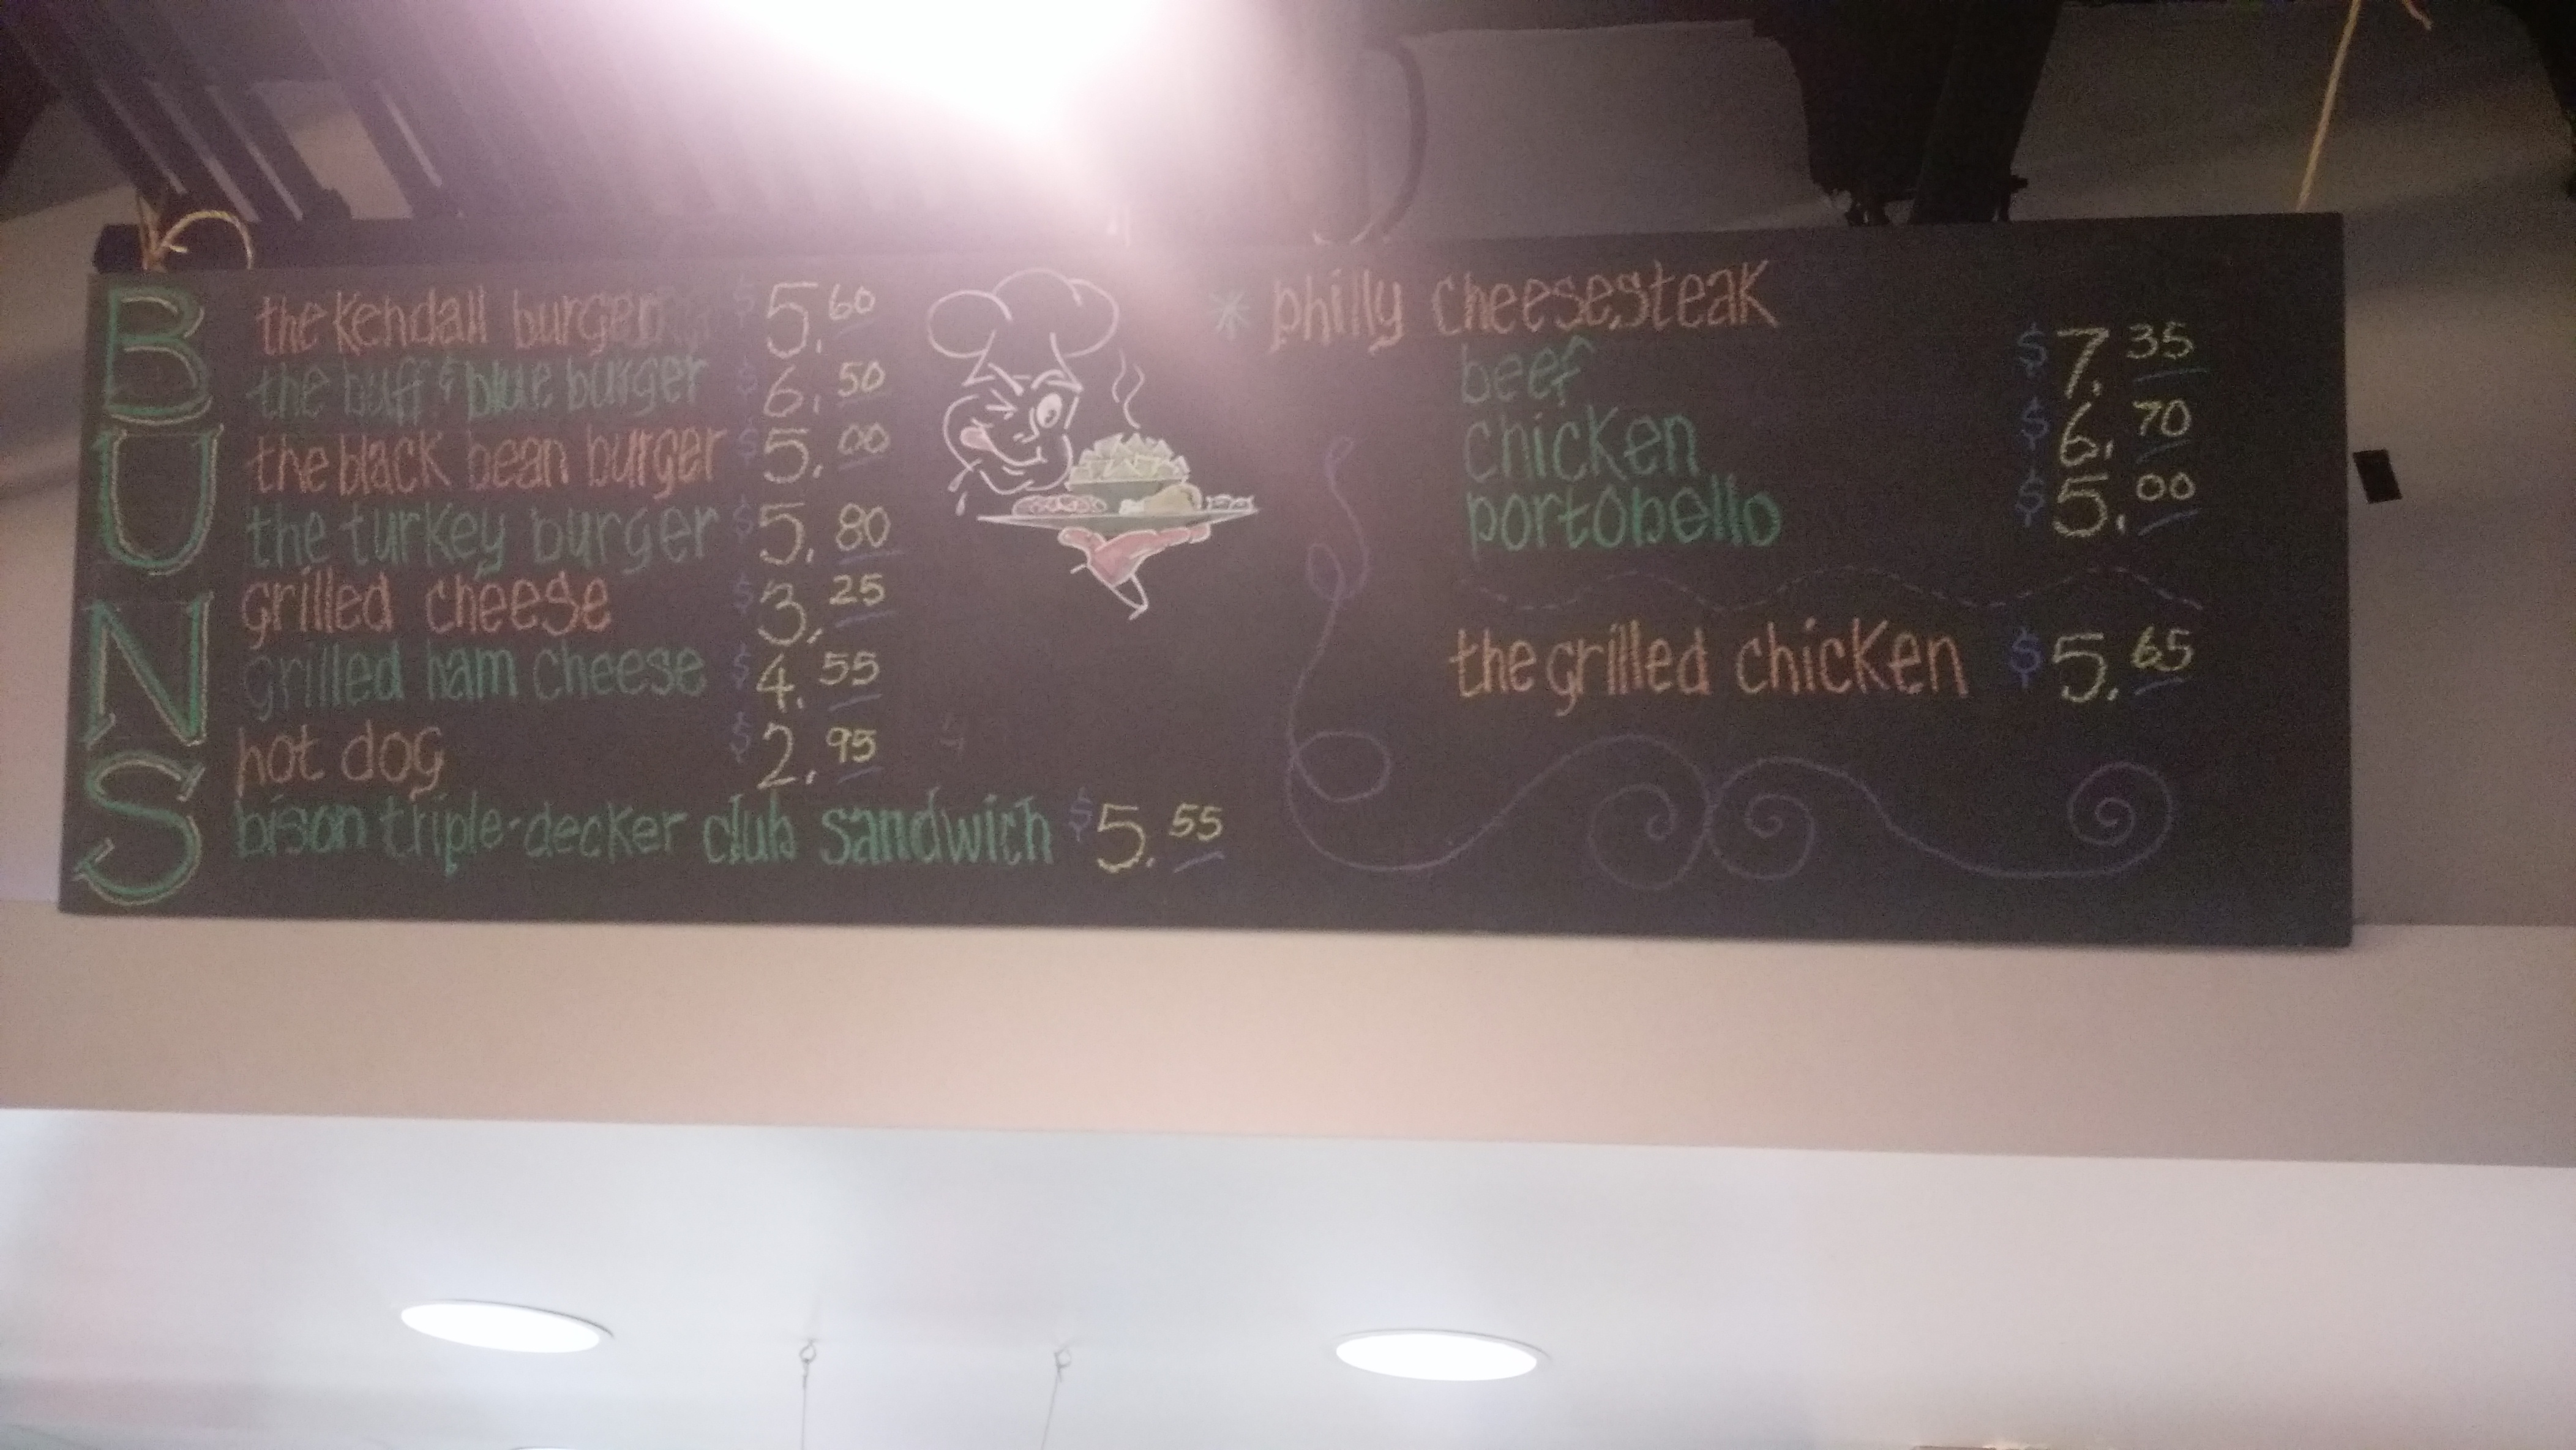 BUNS
the Kendall burger $5.60
the buff & blue burger $6.50
the black bean burger $5.00
the turkey burger $5.80
grilled cheese $3.25
grilled ham cheese $4.55
hot dog $2.95
bison triple-decker club sandwich $5.55
* philly cheesesteak
beef $7.35
chicken $6.70
portobello $5.00
the grilled chicken $5.65